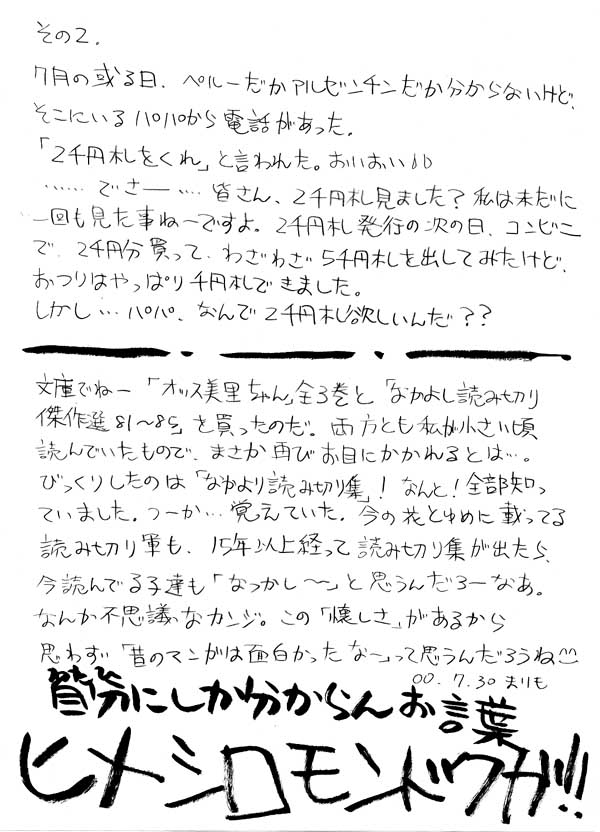 その2.
7月の或る日、ペルーだかアルゼンチンだか分からないけど、
そこにいるパパから電話があった。
「2千円札をくれ」と言われた。おいおい
……でさー……皆さん、2千円札見ました?私は未だに
一回も見た事ね〜ですよ。2千円札発行の次の日、コンビニ
で、2千円分買って、わざわざ5千円札を出してみたけど、
おつりはやっぱり千円札できました。
しかし…パパ、なんで2千円札欲しいんだ??
文庫でねー「オッス美里ちゃん」全3巻と「なかよし読み切り
傑作選81〜85」を買ったのだ。両方とも私が小さい頃
読んでいたもので、まさか再びお目にかかれるとは…。
びっくりしたのは「なかより読み切り集」!なんと!全部知っ
ていました。つーか…覚えていた。今の花とゆめに載ってる
読み切り軍も、15年以上経って読み切り集が出たら、
今読んでる子達も「なっかし〜〜」と思うんだろーなあ。
なんか不思議なカンジ。この「懐しさ」があるから
思わず「昔のマンガは面白かったな〜」って思うんだろうね
00.7.30 まりも
にしか分からんお言葉
ヒメシロモンドクガ!!